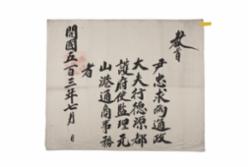 敎旨
尹忠求爲通政
大夫行德源都
護府使監理元
山港通商事務
者
開國五百三年七月 日